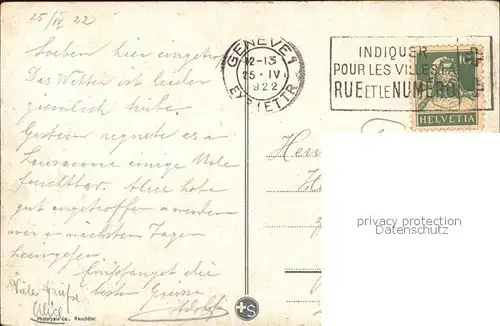 25/IV 22
Soeben hier eingetrof
Das Wetter ist leider
ziemlich trübe.
Gestern regnete es in
Lausanne einige Male
furchtbar. Alice habe
gut angetroffen u werden
wir in nächsten Tagen
heimgehen.
Empfanget die
besten Grüsse
Adolf
Viele Grüsse
Alice
Phototypie Co., Neuchâtel
GENEVE 1
12-13
25 · IV
1922
EXP. LETTR.
INDIQUER
POUR LES VILLES LA
RUE ET LE NUMERO
HELVETIA
Herr
privacy protection
S